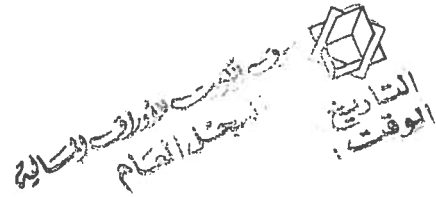 سوق الكويت للأوراق المالية
السجل العام
التاريخ
الوقت: